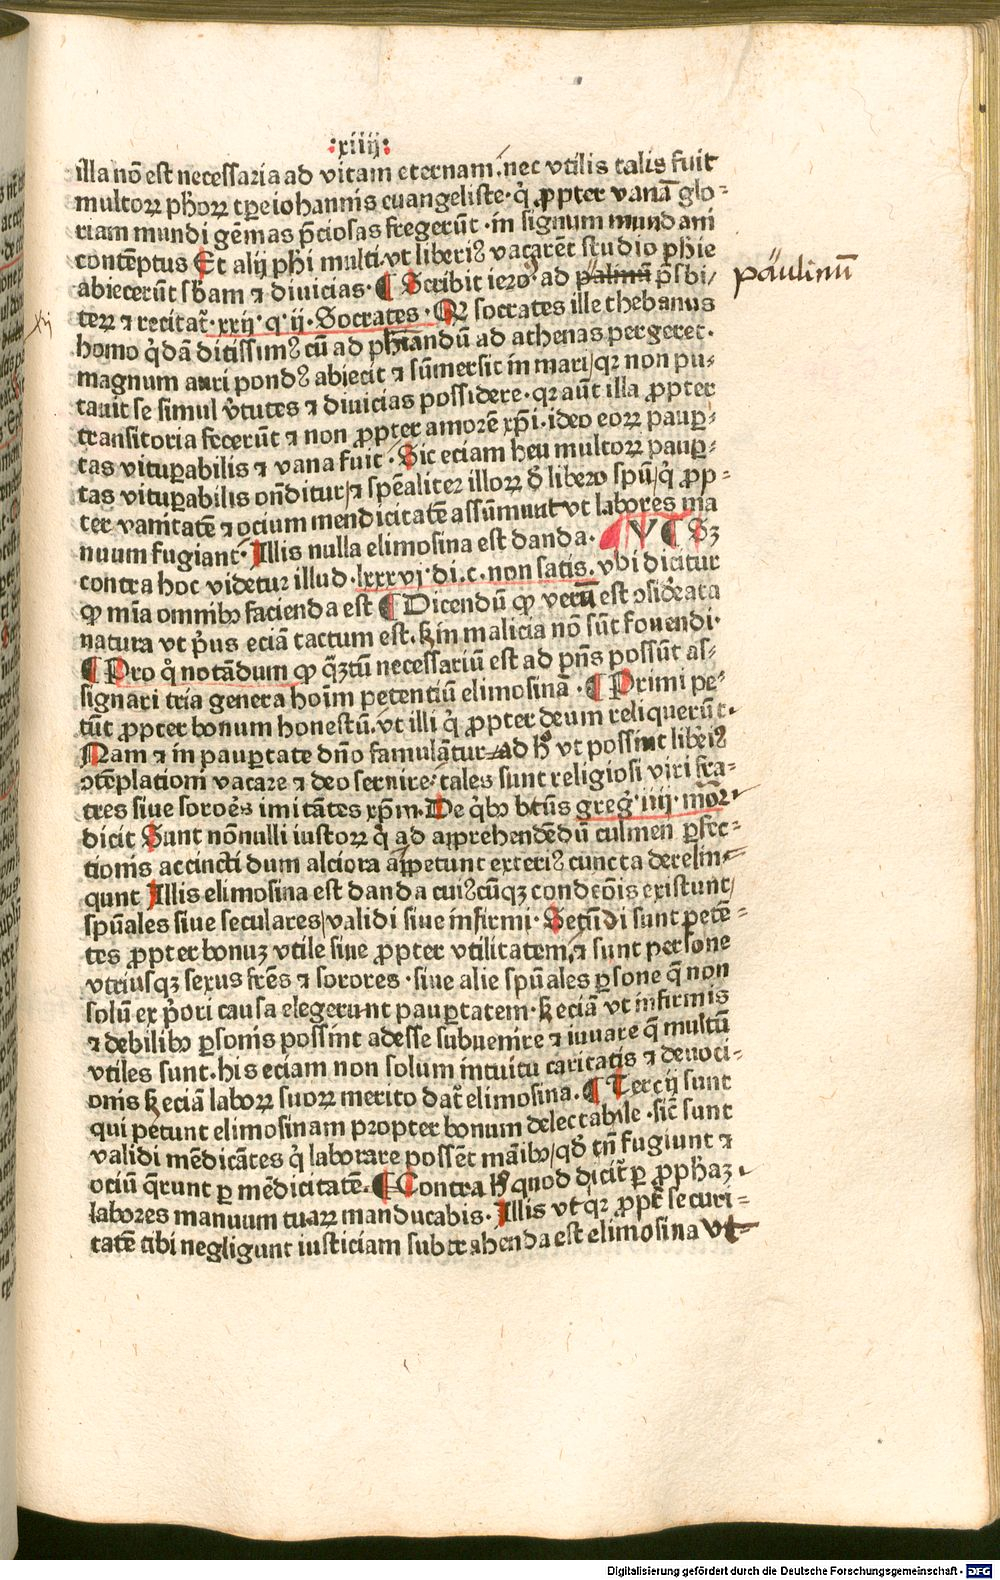 :xiiij:
illa nō est necessaria ad vitam eternam. nec vtilis talis fuit
multoꝝ ph̄oꝝ tꝑe iohannis euangeliste· q̇ ꝓpter vanā glo-
riam mundi gēmas p̄ciosas fregerūt · in signum mundani
contēptus Et alij ph̄i multi. vt liberiꝰ vacarēt studio ph̄ie
abiecerūt s̄bam ⁊ diuicias· ¶ Scribit ieroꝰ· ad palinū p̄sbi/
paulinū
teꝝ ⁊ recitat̄· xxij· q· ij· Socrates · Qꝛ socrates ille thebanus
homo q̇dā ditissimꝰ cū ad ph̄iandū ad athenas pergeret·
magnum auri pondꝰ abiecit ⁊ sūmersit in mari/qꝛ non pu-
tauit se simul v̇tutes ⁊ diuicias possidere· qꝛ aūt illa ꝓpter
transitoria fecerūt ⁊ non ꝓpter amorē xp̄i· ideo eoꝝ pauꝑ-
tas vituꝑabilis ⁊ vana fuit· Sic eciam heu multoꝝ pauꝑ-
tas vituꝑabilis on̄ditur/⁊ spēaliter illoꝝ d̄ libero spū/q̇ ꝓp-
ter vanitatē ⁊ ocium mendicitatē assūmunt vt labores ma
nuum fugiant· Illis nulla elimosina est danda· V ¶ Sꝫ
contra hoc videtur illud· lxxxvj· di· c· non satis. vbi dicitur
ꝙ mīa omnibꝫ facienda est ¶ Dicendū ꝙ verum est ↄsid̓eata
natura vt p̓us eciā tactum est. ꝭ in malicia nō sūt fouendi·
¶ Pro q̇ notādum ꝙ q̄ꝫtū necessariū est ad p̄ns possūt as-
signari tria genera hoīm petentiū elimosinā · ¶ Primi pe-
tūt ꝓpter bonum honestū. vt illi q̇ ꝓpter deum reliquerūt·
Nam ⁊ in pauꝑtate dn̄o famulātur ad hꝰ vt possint liberiꝰ
ↄtēplationi vacare ⁊ deo seruire· tales sunt religiosi viri fra-
tres siue soroēs imitātes xp̄m· De q̇bꝫ btūs greg̓· iiij· mor̄·
dicit Sunt nōnulli iustoꝝ q̇ ad apprehendēdū culmen ꝑfec-
tionis accincti dum alciora appetunt exteriꝰ cuncta derelin-
qunt Illis elimosina est danda cuiꝰcūqꝫ condc̄ōis existunt/
spūales siue seculares/validi siue infirmi· Secūdi sunt petē-
tes ꝓpter bonuꝫ vtile siue ꝓpter vtilitatem, ⁊ sunt persone
vtriusqꝫ sexus frēs ⁊ sorores · siue alie spūales ꝑsone q̄ non
solū ex p̓ori causa elegerunt pauꝑtatem· ꝭ eciā vt infirmis
⁊ debilibꝫ ꝑsonis possint adesse subuenire ⁊ iuuare q̄ multū
vtiles sunt. his eciam non solum intuitu caritatis ⁊ deuoci-
onis ꝭ eciā laboꝝ suoꝝ merito dat̄ elimosina. ¶ Tercij sunt
qui petunt elimosinam propter bonum delectabile · sic̄ sunt
validi mēdicātes q̇ laborare possēt māibꝫ/qd̄ tn̄ fugiunt ⁊
ociū q̄runt ꝑ mēdicitatē. ¶ Contra hꝰ quod dicit̄ ꝑ ꝓphaꝫ ·
labores manuum tuaꝝ manducabis· Illis vt qꝛ ꝓpt̄ securi-
tatē cibi negligunt iusticiam subtrahenda est elimosina vt-
Digitalisierung gefördert durch die Deutsche Forschungsgemeinschaft - DFG